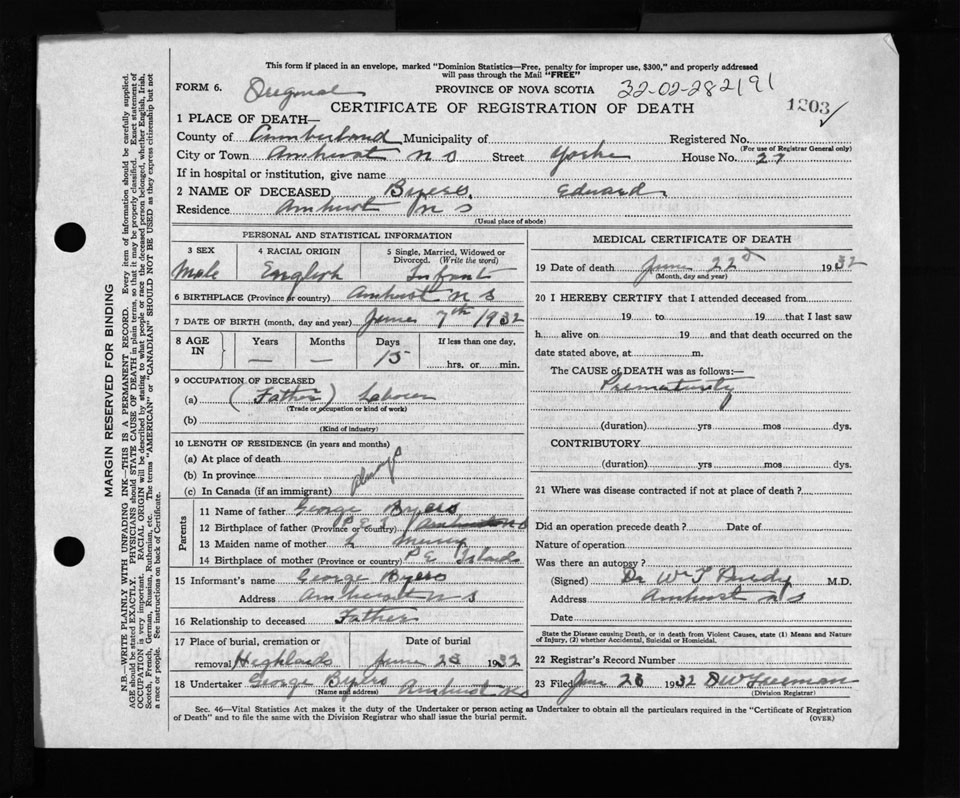 This form if placed in an envelope, marked "Dominion Statistics—Free, penalty for improper use, $300," and properly addressed
will pass through the Mail "FREE"
FORM 6. Original PROVINCE OF NOVA SCOTIA 32-02-282191
CERTIFICATE OF REGISTRATION OF DEATH 1203 ✓
1 PLACE OF DEATH—
County of Cumberland Municipality of Registered No.
(For use of Registrar General only)
City or Town Amherst N S Street Yorke House No. 27
If in hospital or institution, give name
2 NAME OF DECEASED Byers, Edward
Residence Amherst N S
(Usual place of abode)
PERSONAL AND STATISTICAL INFORMATION
3 SEX 4 RACIAL ORIGIN 5 Single, Married, Widowed or
Divorced. (Write the word)
Male English Infant
6 BIRTHPLACE (Province or country) Amherst N S
7 DATE OF BIRTH (month, day and year) June 7th 1932
8 AGE IN Years Months Days If less than one day,
— — 15 hrs. or min.
9 OCCUPATION OF DECEASED
(a) (Father) Laborer
(Trade or occupation or kind of work)
(b)
(Kind of industry)
10 LENGTH OF RESIDENCE (in years and months)
(a) At place of death
(b) In province always
(c) In Canada (if an immigrant)
Parents
11 Name of father George Byers
12 Birthplace of father (Province or country) P E I Amherst N S
13 Maiden name of mother
14 Birthplace of mother (Province or country) P E Islands
15 Informant's name George Byers
Address Amherst N S
16 Relationship to deceased Father
17 Place of burial, cremation or Date of burial
removal Highlands June 23 1932
18 Undertaker George Byers Amherst N S
(Name and address)
MEDICAL CERTIFICATE OF DEATH
19 Date of death June 22d 1932
(Month, day and year)
20 I HEREBY CERTIFY that I attended deceased from
19 to 19 that I last saw
h alive on 19 and that death occurred on the
date stated above, at m.
The CAUSE of DEATH was as follows:—
Prematurity
(duration) yrs mos dys.
CONTRIBUTORY
(duration) yrs mos dys.
21 Where was disease contracted if not at place of death?
Did an operation precede death? Date of
Nature of operation
Was there an autopsy?
(Signed) Dr M.D.
Address Amherst N S
Date
State the Disease causing Death, or in death from Violent Causes, state (1) Means and Nature
of Injury, (2) whether Accidental, Suicidal or Homicidal.
22 Registrar's Record Number
23 Filed June 23 1932 D W Freeman
(Division Registrar)
Sec. 46—Vital Statistics Act makes it the duty of the Undertaker or person acting as Undertaker to obtain all the particulars required in the "Certificate of Registration
of Death" and to file the same with the Division Registrar who shall issue the burial permit. (OVER)
MARGIN RESERVED FOR BINDING
N.B.—WRITE PLAINLY WITH UNFADING INK—THIS IS A PERMANENT RECORD. Every item of information should be carefully supplied.
AGE should be stated EXACTLY. PHYSICIANS should STATE CAUSE OF DEATH in plain terms, so that it may be properly classified. Exact statement of
OCCUPATION is very important. RACIAL ORIGIN will be described by stating to what people or race the deceased person belonged, whether English, Irish,
Scotch, French, German, Russian, Ruthenian, etc. The terms "AMERICAN" or "CANADIAN" SHOULD NOT BE USED as they express citizenship but not
a race or people. See instructions on back of Certificate.